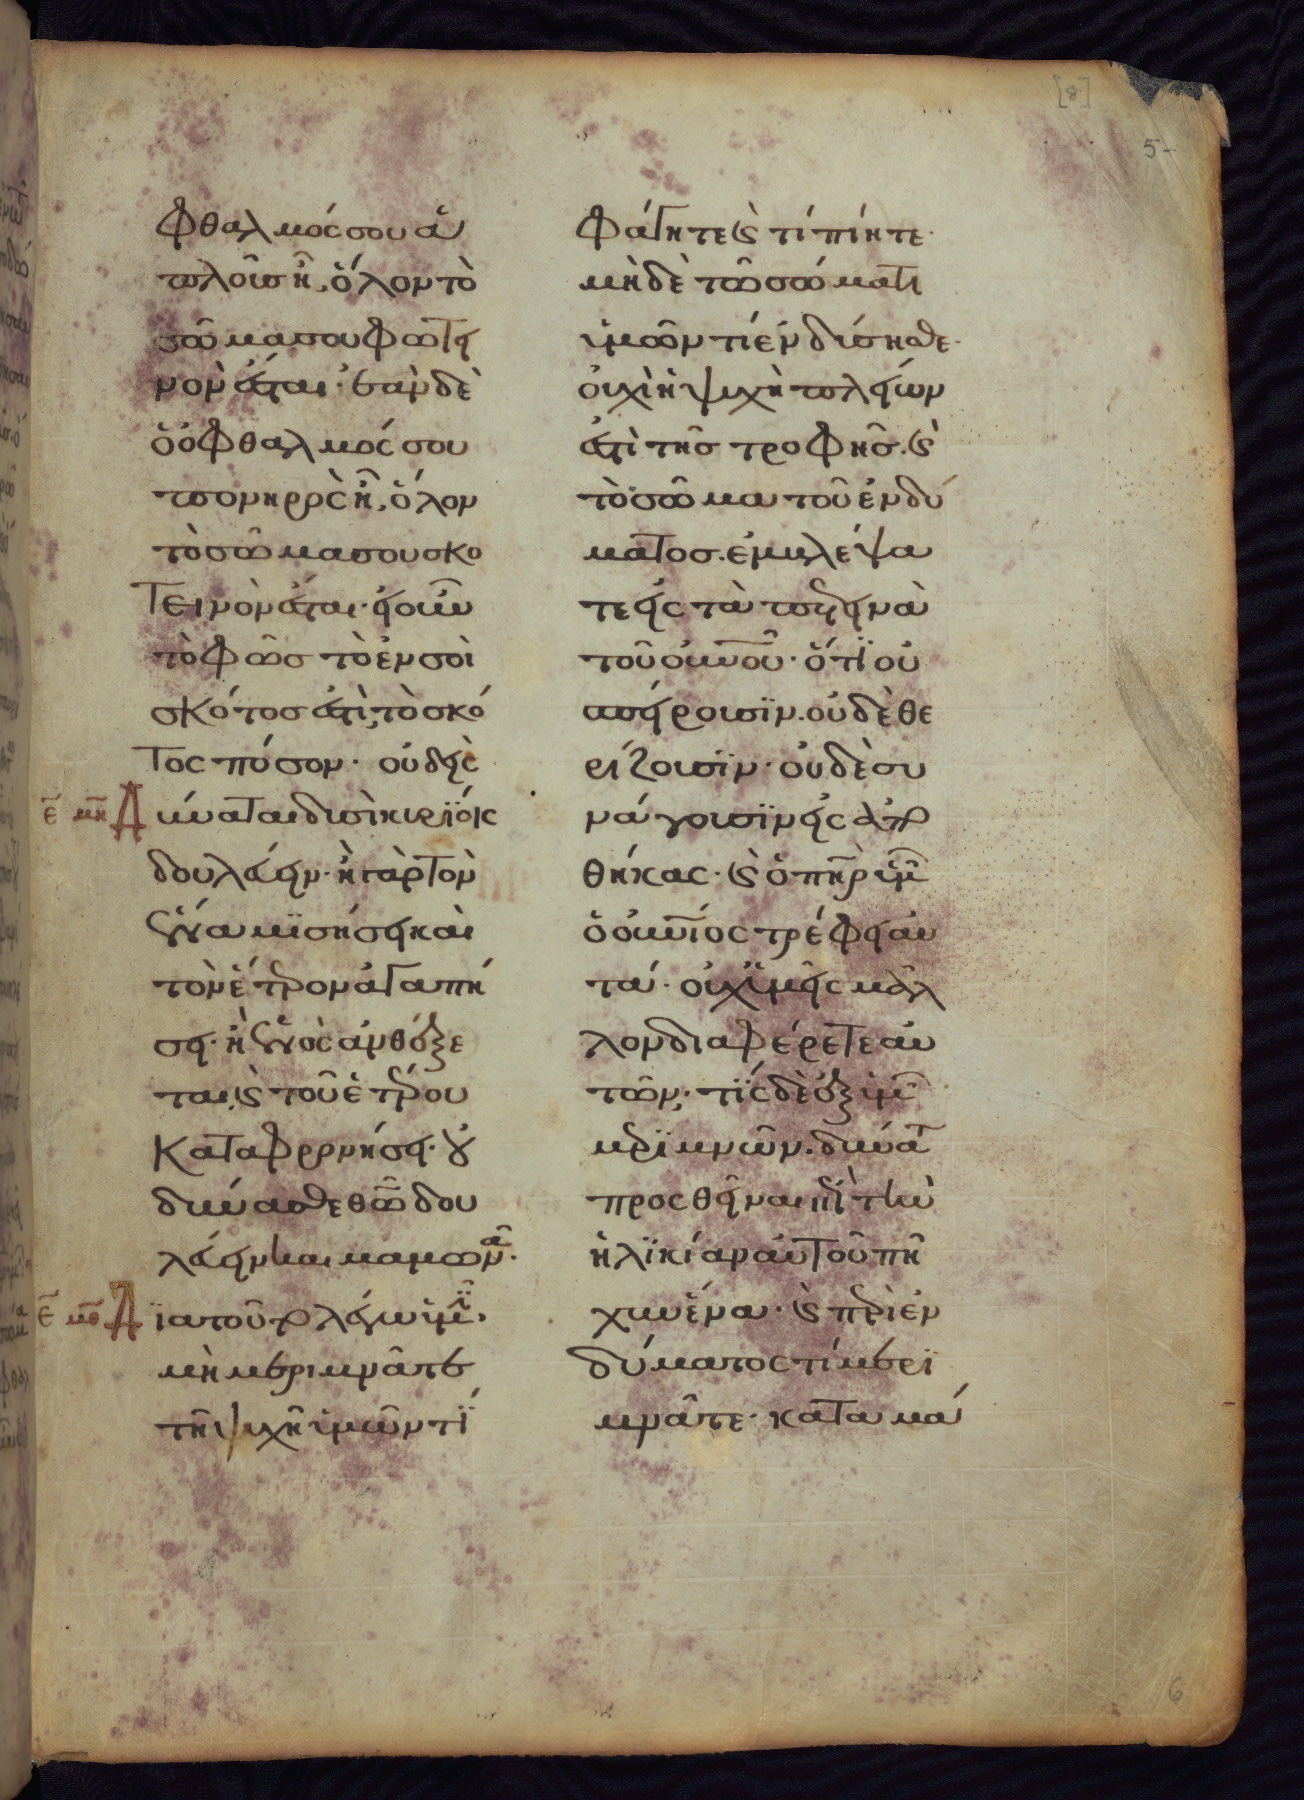 [8]
5-
φθαλμός σου ἁ
πλοῦς ἢ, ὅλον τὸ
σῶμά σου φωτει
νὸν ἔσται· ἐὰν δὲ
ὁ ὀφθαλμός σου
πονηρὸς ἦ, ὅλον
τὸ σῶμα σου σκο
τεινὸν ἔσται· εἰ οὖν
τὸ φῶς τὸ ἐν σοὶ
σκότος ἐστὶ, τὸ σκό
τος πόσον· οὐδεὶς
δύναται δυσὶ κυρίοις
δουλεύειν· ἢ γὰρ τὸν
ἕνα μισήσει καὶ
τὸν ἕτερον ἀγαπή
σει· ἢ ἑνὸς ἀνθέξε
ται, ϗ τοῦ ἑτέρου
καταφρονήσει· οὐ
δύνασθε θῶ δου
λεύειν καὶ μαμωνᾶ·
Διὰ τοῦτο λέγω ὑμῖ,
μὴ μεριμνᾶτε
τῆ ψυχῆ ὑμῶν τί
φάγητε ϗ τί πίητε·
μὴ δὲ τῶ σώματι
ὑμῶν τί ἐνδύσησθε·
οὐχὶ ἡ ψυχὴ πλεῖων
ἐστὶ τῆς τροφῆς. ϗ
τὸ σῶμα τοῦ ἐνδύ
ματος. ἐμβλέψα
τε εἰς τὰ πετεινὰ
τοῦ οὐνοῦ· ὅτι οὐ
σπείρουσιν. οὐδὲ θε
ρίζουσιν· οὐδὲ συ
νάγουσιν εἰς ἀπο
θήκας· ϗ ὁ πηρ ὑμ
ὁ οὐνιος τρέφει αὐ
τά· οὐχ ὑμεῖς μᾶλ
λον διαφέρετε αὐ
τῶν; τίς δὲ ἐξ ὑμ
μεριμνῶν. δύνατ
προσθεῖναι ἐπὶ τὴν
ἡλικίαν αὐτοῦ πῆ
χυν ἕνα· ϗ περὶ ἐν
δύματος τί μερι
μνᾶτε· καταμά
6